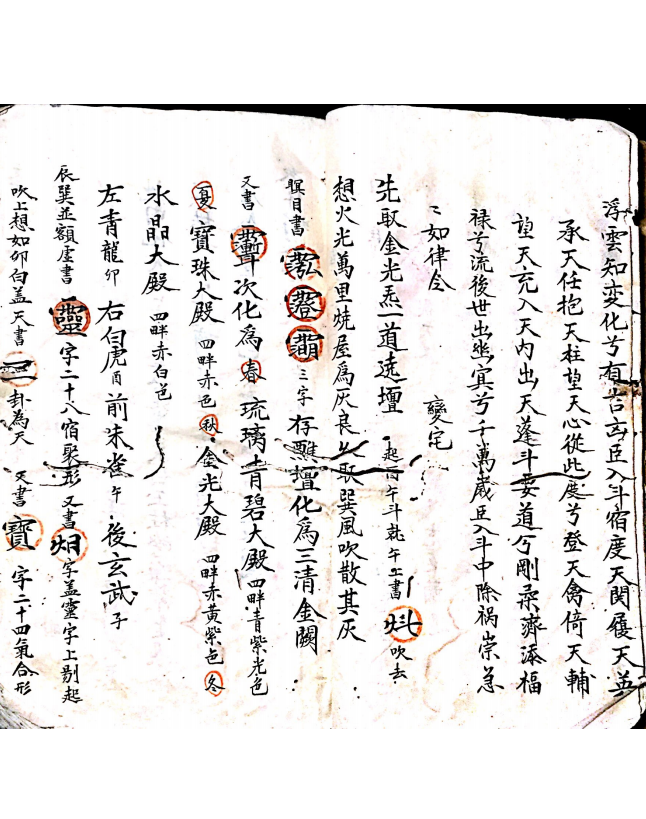 浮雲知変化兮有吉 臣入斗宿度天関履天英
承天任抱天柱望天心從此度兮登天禽倚天輔
望天充入天内出天蓬斗要道兮剛柔濟添福
禄兮流後世出幽冥兮千萬歲臣入斗中除禍祟急
〻如律令　變宅
先取金光炁一道遶壇 起 午斗就午上書 吹去
想火光萬里焼屋為灰良久取巽風吹散其灰
瞑目書 三字 存醮壇化為三清金闕
又書 次化為春 琉璃青碧大殿 四畔青紫光色
夏 寶珠大殿 四畔赤色 秋 金光大殿 四畔赤黄紫色 冬
水晶大殿 四畔赤白色
左青龍卯 右白虎酉 前朱雀午 後玄武子
辰巽並額虚書 靈 字二十八宿聚形 又書 字盖靈字上剔起
吹上想如卯白盖天書 三 卦為天 又書 寶 字二十四氣合形